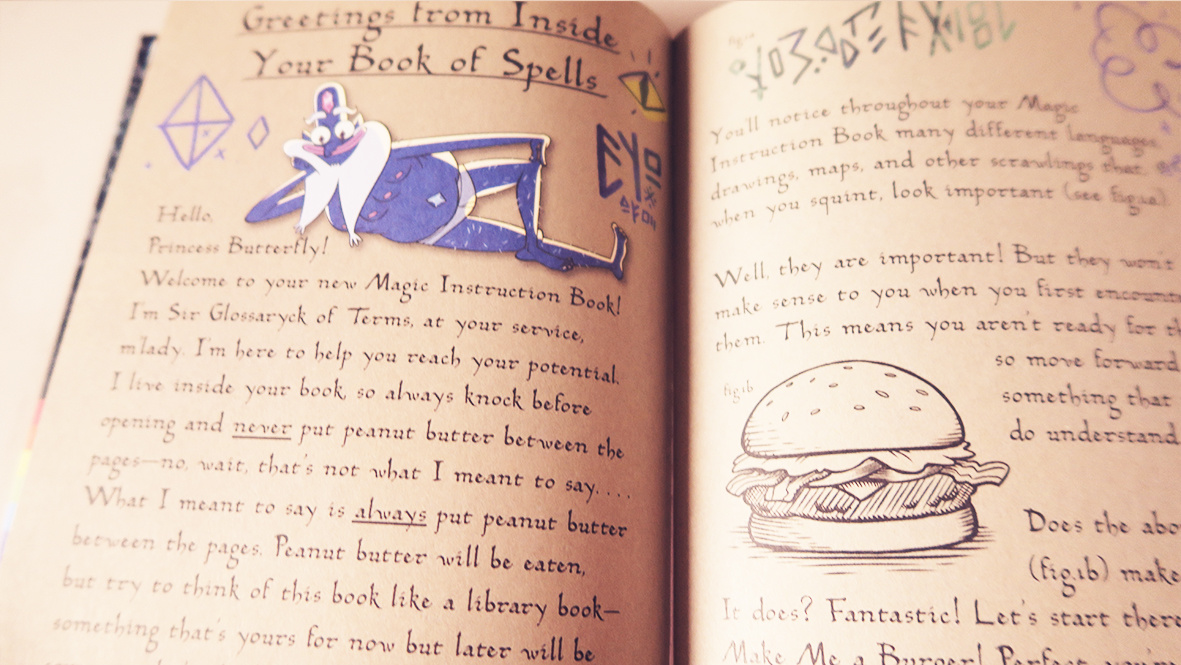 Greetings from Inside
Your Book of Spells
Hello,
Princess Butterfly!
Welcome to your new Magic Instruction Book!
I'm Sir Glossaryck of Terms, at your service,
m'lady. I'm here to help you reach your potential.
I live inside your book, so always knock before
opening and never put peanut butter between the
pages—no, wait, that's not what I meant to say....
What I meant to say is always put peanut butter
between the pages. Peanut butter will be eaten,
but try to think of this book like a library book—
something that's yours for now but later will be
You'll notice throughout your Magic
Instruction Book many different languages,
drawings, maps, and other scrawlings that,
when you squint, look important (see fig.1a).
Well, they are important! But they won't
make sense to you when you first encount
them. This means you aren't ready for th
so move forward
something that
do understand
fig.1b
Does the abo
(fig.1b) make
It does? Fantastic! Let's start there
Make Me a Burger! Perfect